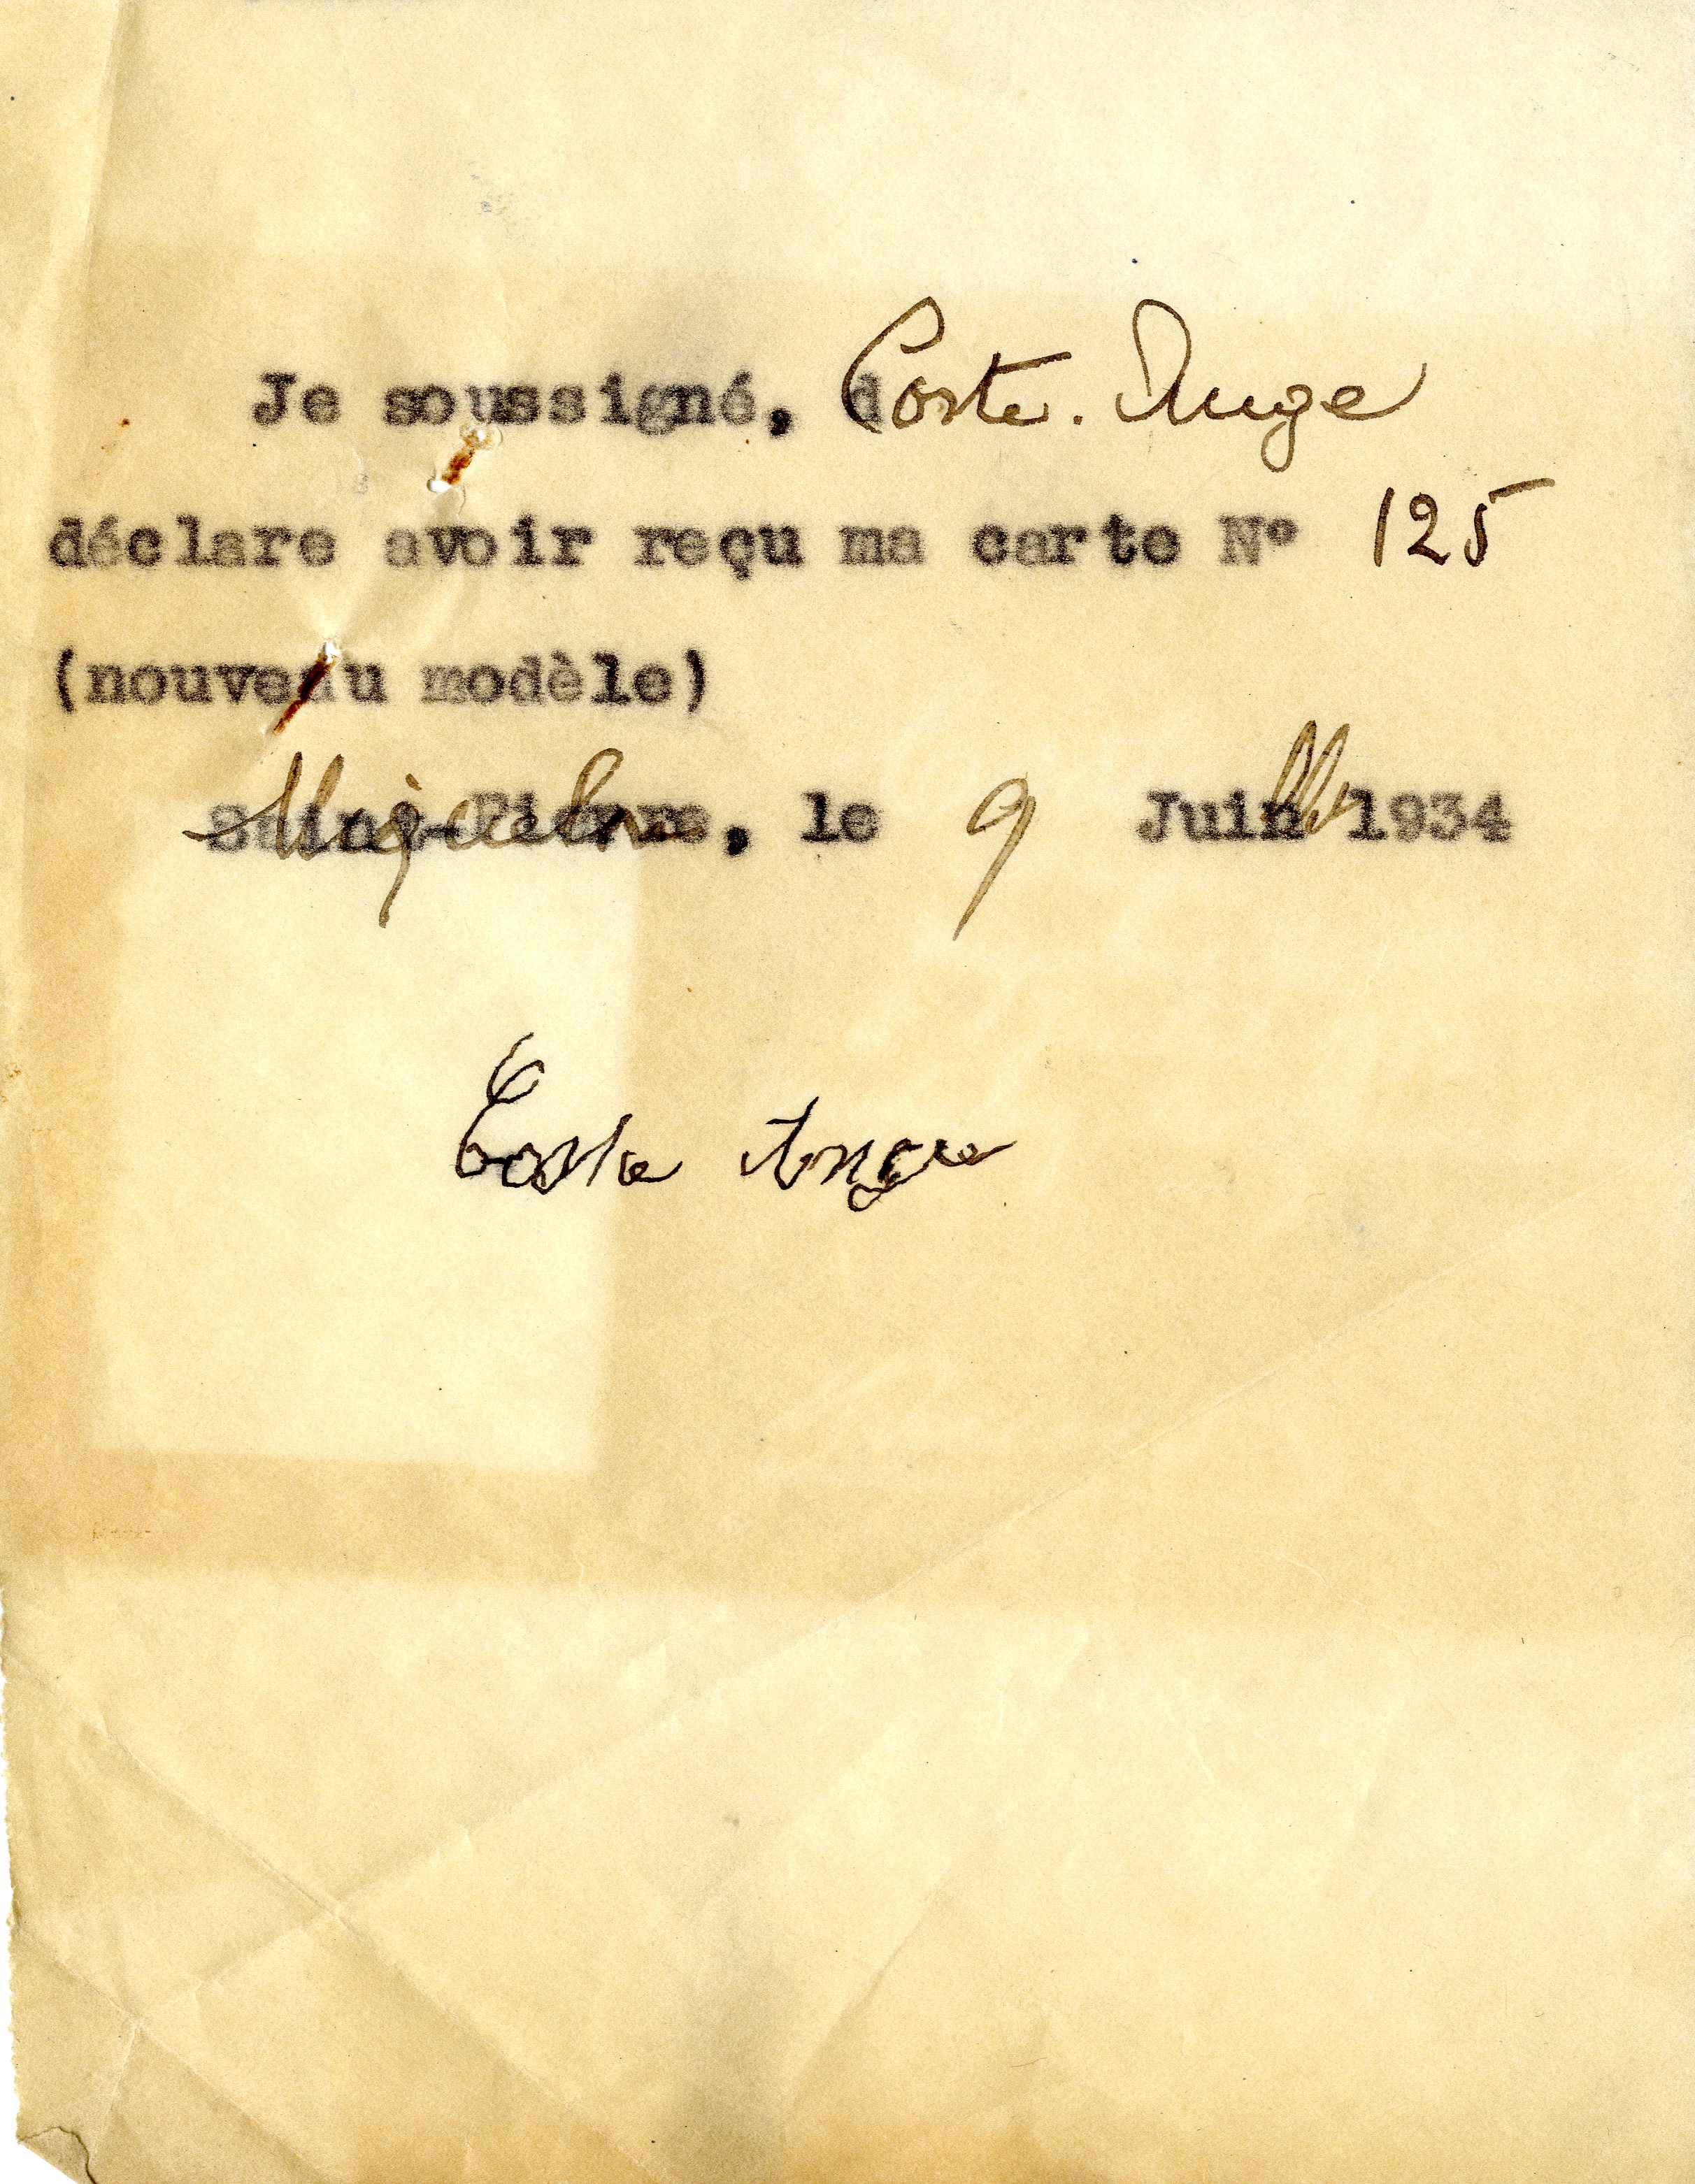 Je soussigné, Coste. Ange
déclare avoir reçu ma carte N° 125
(nouveau modèle)
Miquelon, le 9 Juillet 1934
Coste Ange